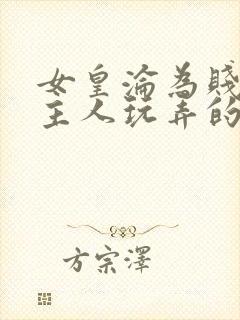 女皇淪為賤
主人玩弄的
方宗澤